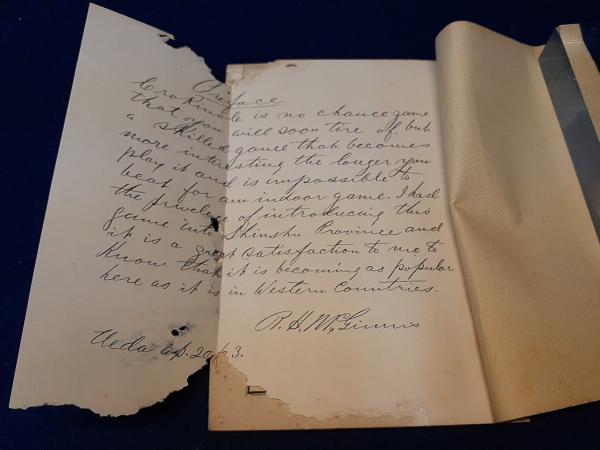 Preface
CroKinole is no chance game
that you will soon tire of, but
a skilled game that becomes
more interesting the longer you
play it and is impossible to
beat for an indoor game. I had
the privelege of introducing this
game into Shinshu Province and
it is a great satisfaction to me to
Know that it is becoming as popular
here as it is in Western Countries.
R. H. McGinnis
Ueda ap. 20